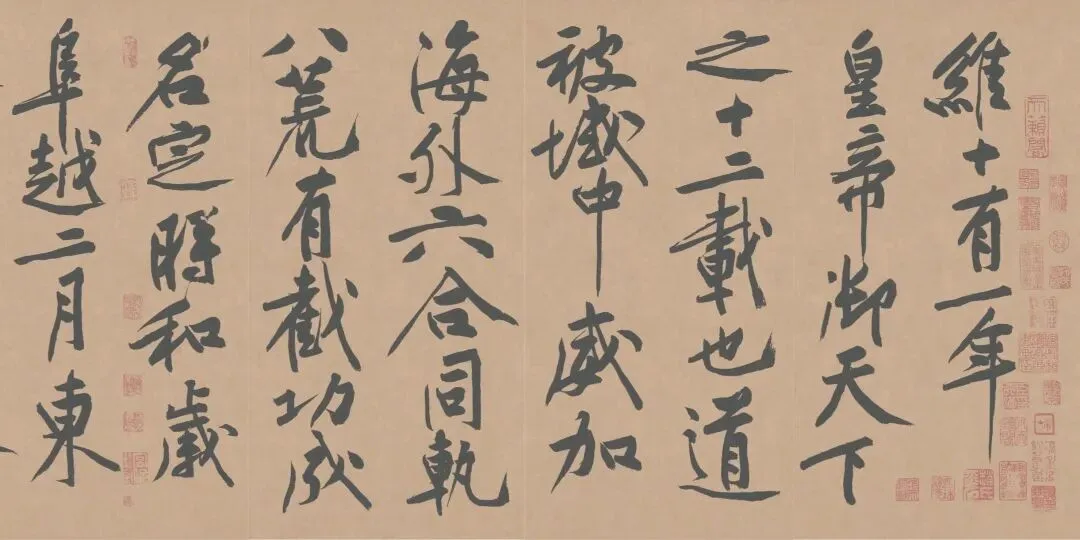 維十有一年
皇帝御天下
之十二載也道
被域中威加
海外六合同軌
八荒有截功成
名定時和歲
阜越二月東